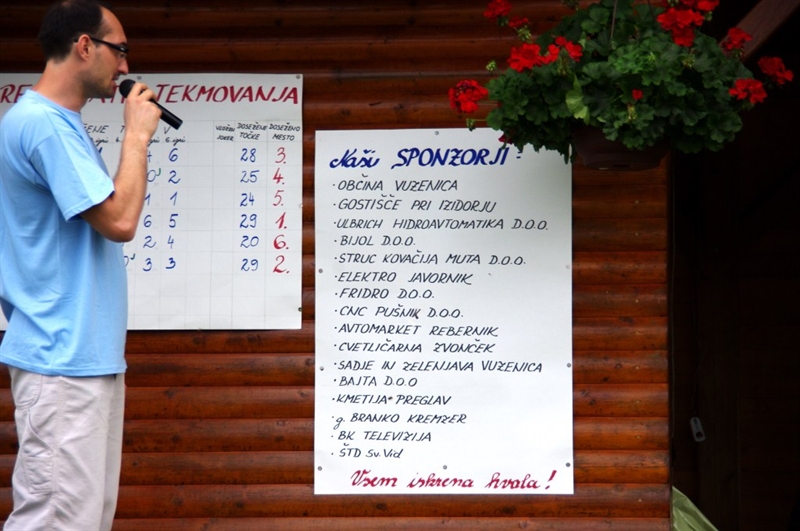 TEKMOVANJA
DOSEŽENE DOSEŽENO
JOKER TOČKE MESTO
6 28 3.
2 25 4.
1 1 24 5.
6 5 29 1.
2 4 20 6.
3 3 29 2.
Naši SPONZORJI:
· OBČINA VUZENICA
· GOSTIŠČE PRI IZIDORJU
· ULBRICH HIDROAVTOMATIKA D.O.O.
· BIJOL D.O.O.
· STRUC KOVAČIJA MUTA D.O.O.
· ELEKTRO JAVORNIK
· FRIDRO D.O.O.
· CNC PUŠNIK D.O.O.
· AVTOMARKET REBERNIK
· CVETLIČARNA ZVONČEK
· SADJE IN ZELENJAVA VUZENICA
· BAJTA D.O.O
· KMETIJA PREGLAV
· g. BRANKO KREMZER
· BK TELEVIZIJA
· ŠTD Sv. Vid
Vsem iskrena hvala!